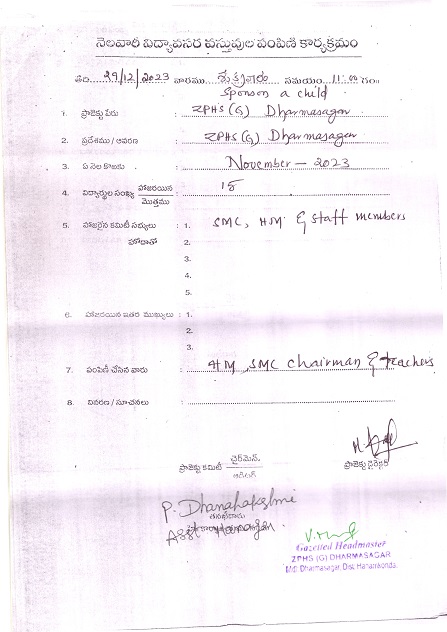 నెలవారి విద్యావసర వస్తువుల పంపిణి కార్యక్రమం
తేది 29/12/2023 వారము శుక్రవారం సమయం 11:00 గం॥
Sponson a child
1. ప్రాజెక్టు పేరు : ZPHS (G) Dharmasagar
2. ప్రదేశము / ఆవరణ : ZPHS (G) Dharmasagar
3. ఏ నెల కొఱకు : November - 2023
4. విద్యార్థుల సంఖ్య హాజరయిన మొత్తము : 15
5. హాజరైన కమిటీ సభ్యులు : 1. SMC, HM & staff members
హోదాతో 2.
3.
4.
5.
6. హాజరయిన ఇతర ముఖ్యులు : 1.
2.
3.
7. పంపిణీ చేసిన వారు : HM, SMC Chairman & teachers
8. వివరణ / సూచనలు :
ప్రాజెక్టు కమిటీ ఛైర్మెన్
ప్రాజెక్టు డైరెక్టర్
P. Dhanalakshmi
Asst Manager
Gazetted Headmaster
ZPHS (G) DHARMASAGAR
Mdl: Dharmasagar, Dist. Hanamkonda